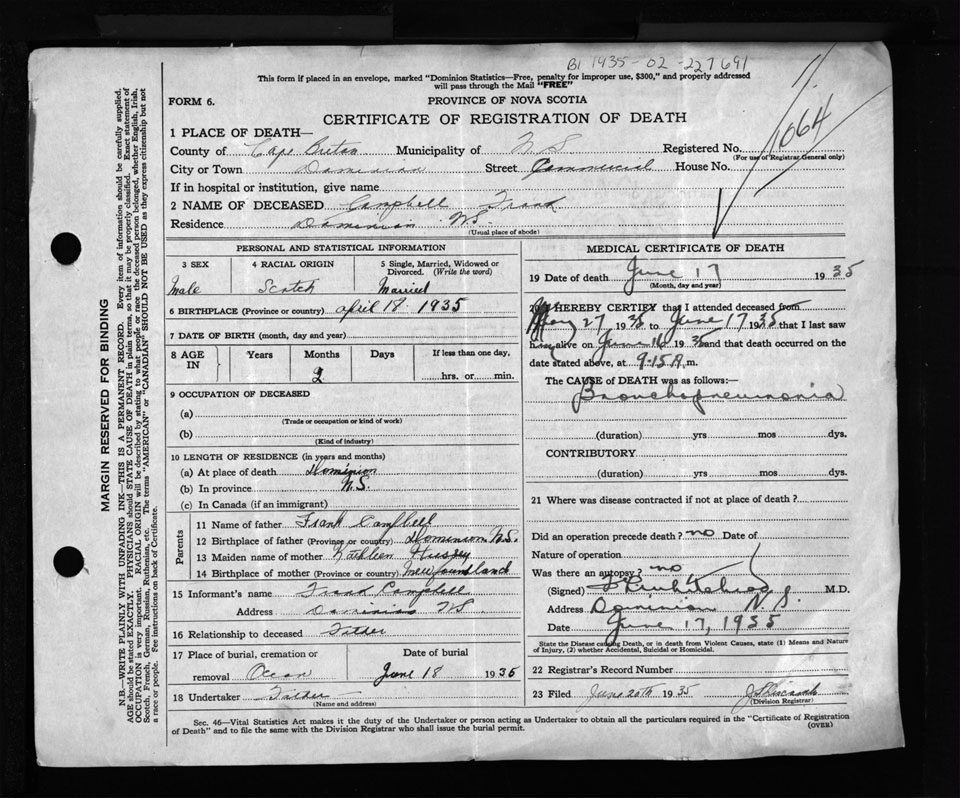 B1 1935-02-227691
This form if placed in an envelope, marked "Dominion Statistics—Free, penalty for improper use, $300," and properly addressed
will pass through the Mail "FREE"
FORM 6.
PROVINCE OF NOVA SCOTIA
CERTIFICATE OF REGISTRATION OF DEATH
1064
1 PLACE OF DEATH—
County of Cape Breton Municipality of N S Registered No.
(For use of Registrar General only)
City or Town Dominion Street Commercial House No.
If in hospital or institution, give name
2 NAME OF DECEASED Campbell Frank
Residence Dominion NS
(Usual place of abode)
PERSONAL AND STATISTICAL INFORMATION
3 SEX 4 RACIAL ORIGIN 5 Single, Married, Widowed or Divorced. (Write the word)
Male Scotch Married
6 BIRTHPLACE (Province or country) April 18 1935
7 DATE OF BIRTH (month, day and year)
8 AGE IN Years Months Days If less than one day,
2 hrs. or min.
9 OCCUPATION OF DECEASED
(a)
(Trade or occupation or kind of work)
(b)
(Kind of industry)
10 LENGTH OF RESIDENCE (in years and months)
(a) At place of death Dominion
(b) In province N.S.
(c) In Canada (if an immigrant)
Parents
11 Name of father Frank Campbell
12 Birthplace of father (Province or country) Dominion N.S.
13 Maiden name of mother Kathleen
14 Birthplace of mother (Province or country) Newfoundland
15 Informant's name Frank Campbell
Address Dominion NS
16 Relationship to deceased Father
17 Place of burial, cremation or removal Date of burial
Ocean June 18 1935
18 Undertaker Father
(Name and address)
MEDICAL CERTIFICATE OF DEATH
19 Date of death June 17 1935
(Month, day and year)
HEREBY CERTIFY that I attended deceased from
May 27 1935 to June 17 1935 that I last saw
him alive on June 16 1935 and that death occurred on the
date stated above, at 9-15 A m.
The CAUSE of DEATH was as follows:—
Bronchopneumonia
(duration) yrs mos dys.
CONTRIBUTORY
(duration) yrs. mos. dys.
21 Where was disease contracted if not at place of death?
Did an operation precede death? no Date of
Nature of operation
Was there an autopsy? no
(Signed) M.D.
Address Dominion N.S.
Date June 17, 1935
State the Disease causing Death, or in death from Violent Causes, state (1) Means and Nature
of Injury, (2) whether Accidental, Suicidal or Homicidal.
22 Registrar's Record Number
23 Filed June 20th 1935
(Division Registrar)
Sec. 46—Vital Statistics Act makes it the duty of the Undertaker or person acting as Undertaker to obtain all the particulars required in the "Certificate of Registration
of Death" and to file the same with the Division Registrar who shall issue the burial permit.
(OVER)
MARGIN RESERVED FOR BINDING
N.B.—WRITE PLAINLY WITH UNFADING INK—THIS IS A PERMANENT RECORD. Every item of information should be carefully supplied.
AGE should be stated EXACTLY. PHYSICIANS should STATE CAUSE OF DEATH in plain terms, so that it may be properly classified. Exact statement of
OCCUPATION is very important. RACIAL ORIGIN will be described by stating to what people or race the deceased person belonged, whether English, Irish,
Scotch, French, German, Russian, Ruthenian, etc. The terms "AMERICAN" or "CANADIAN" SHOULD NOT BE USED as they express citizenship but not
a race or people. See instructions on back of Certificate.